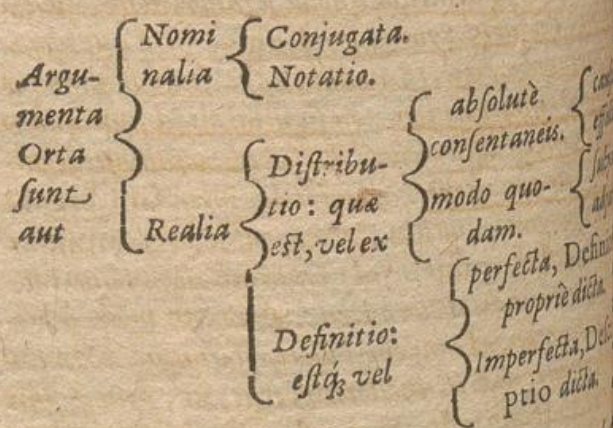 Argu-
menta
Orta
ſunt
aut
Nomi
nalia
Conjugata.
Notatio.
Realia
Diſtribu-
tio: quæ
eſt, vel ex
abſolutè
conſentaneis.
modo quo-
dam.
Definitio:
eſtq́ꝫ vel
perfecta,
propriè dicta.
Imperfecta,
ptio dicta.